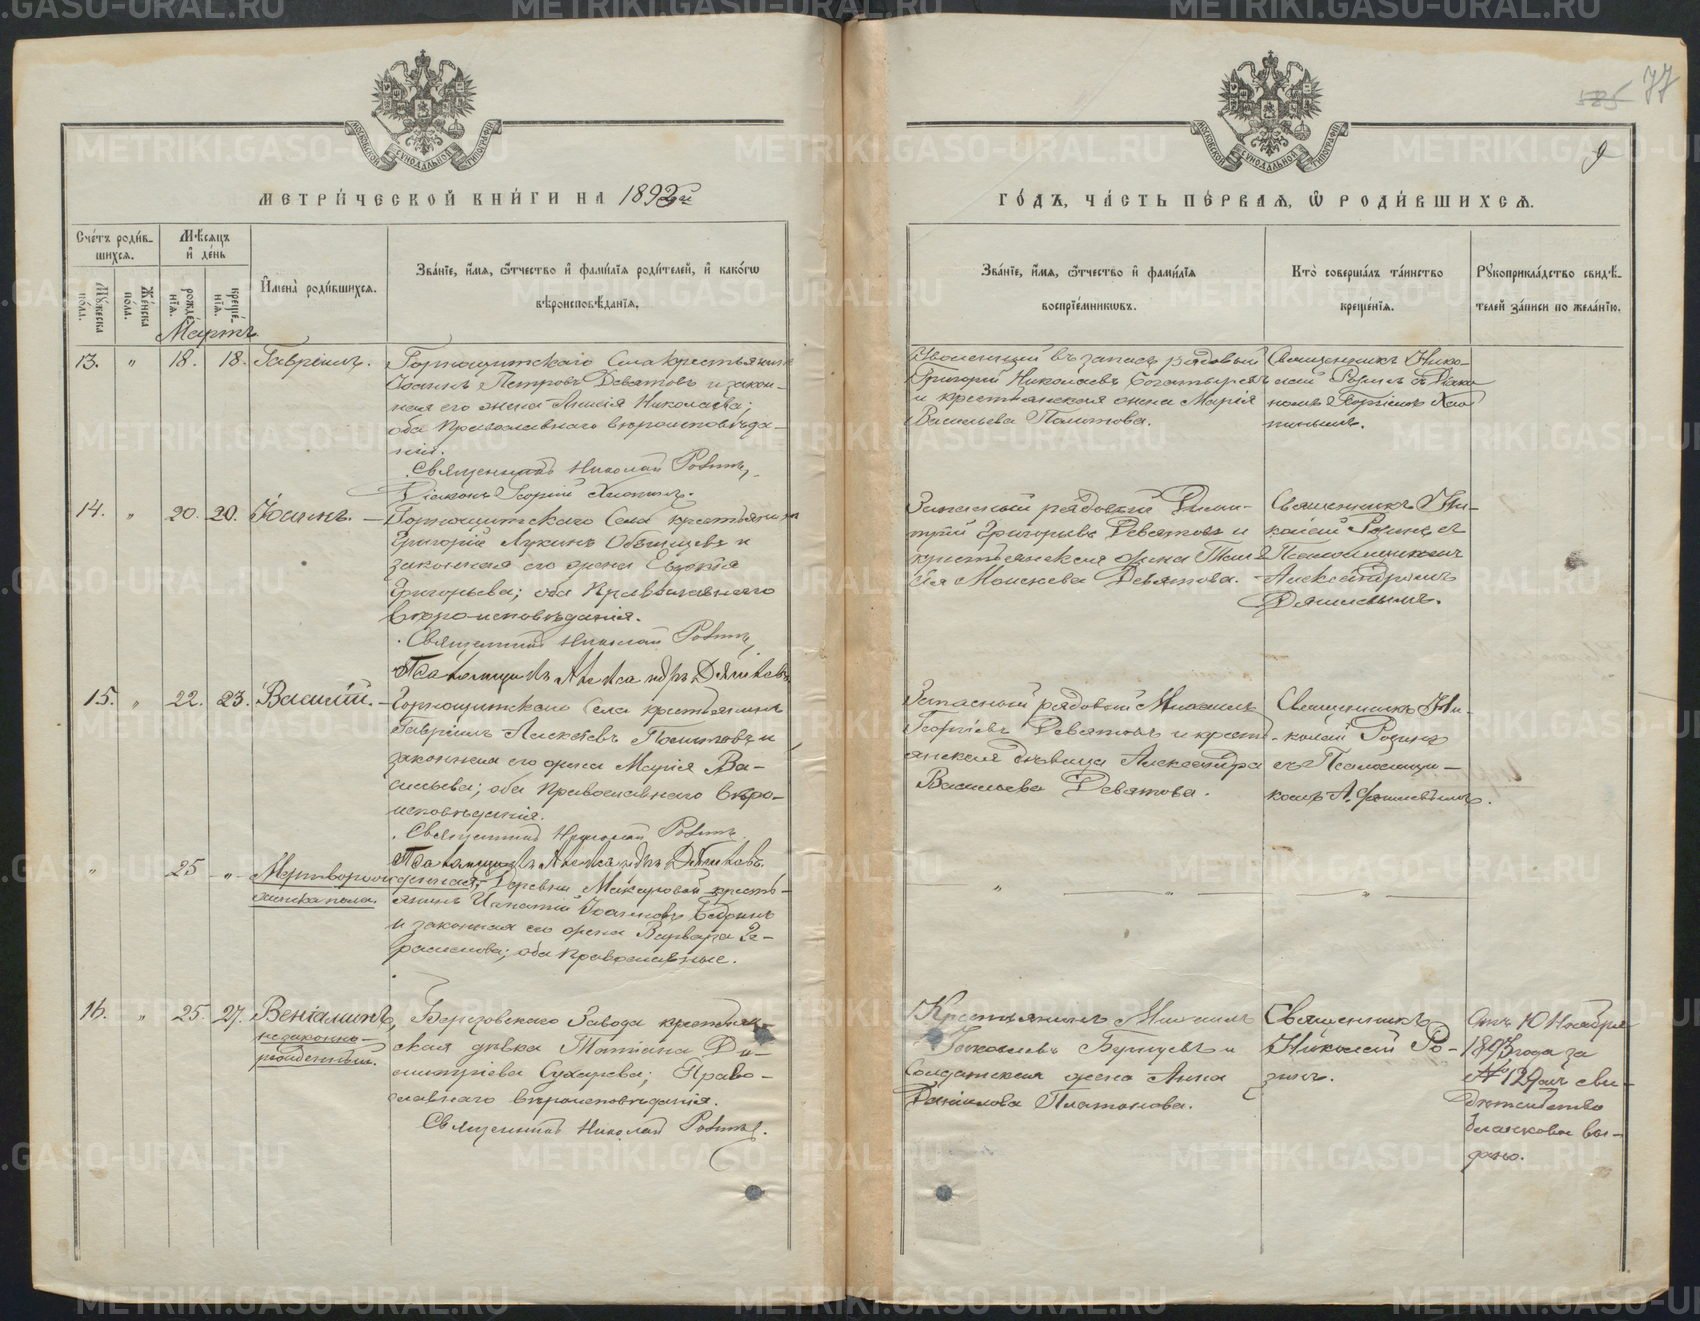 77
585
9
МОСКОВСКОЙ СУНОДАЛЬНОЙ ТИПОГРАФІИ
МОСКОВСКОЙ СУНОДАЛЬНОЙ ТИПОГРАФІИ
МЕТРИ́ЧЕСКОЙ КНИ́ГИ НА 1893й
ГО́ДЪ, ЧА́СТЬ ПЕ́РВАѦ, Ѿ РОДИ́ВШИХСѦ.
Сче́тъ роди́в-
шихсѧ.
Му́жеска по́ла.
Же́нска по́ла.
Мѣ́сѧцъ и де́нь
рожде́нїѧ.
креще́нїѧ.
Имена̀ роди́вшихсѧ.
Зва́нїе, и́мѧ, ѻ́тчество и фами́лїѧ роди́телей, и како́гѡ
вѣроисповѣ́данїѧ.
Зва́нїе, и́мѧ, ѻ́тчество и фами́лїѧ
воспрїе́мникѡвъ.
Кто̀ соверша́лъ та́инство
креще́нїѧ.
Рꙋкоприкла́дство свидѣ́-
телей за́писи по жела́нїю.
Мартъ.
13. " 18. 18. Гавріилъ.
Горнощитскаго Села крестьянинъ
Іоаннъ Петровъ Девятовъ и закон-
ная его жена Анисія Николаева;
оба Православнаго вѣроисповѣда-
нія.
Священникъ Николай Розинъ,
Діаконъ Георгій Хлопинъ.
Уволенный въ запасъ рядовый
Григорій Николаевъ Богатыревъ
и крестьянская жена Марія
Васильева Полотова.
Священникъ Нико-
лай Розинъ съ Діако-
номъ Георгіемъ Хло-
пинымъ.
14. " 20. 20. Іоаннъ.
Горнощитскаго Села крестьянинъ
Григорій Лукинъ и
законная его жена Евдокія
Григорьева; оба Православнаго
вѣроисповѣданія.
Священникъ Николай Розинъ,
Псаломщикъ Александръ Дягилевъ.
Запасный рядовый Дими-
трій Григорьевъ Девятовъ и
крестьянская жена
Моисеева Девятова.
Священникъ Ни-
колай Розинъ съ
Псаломщикомъ
Александромъ
Дягилевымъ.
15. " 22. 23. Василій.
Горнощитскаго Села крестьянинъ
Гавріилъ Алексѣевъ и
законная его жена Марія Ва-
сильева; оба Православнаго вѣро-
исповѣданія.
Священникъ Николай Розинъ.
Псаломщикъ Александръ Дягилевъ.
Запасный рядовый Михаилъ
Георгіевъ Девятовъ и крест-
янская дѣвица Александра
Васильева Девятова.
Священникъ Ни-
колай Розинъ
съ Псаломщи-
комъ А. Дягилевымъ.
" 25 " Мертворожденная,
женска пола.
Деревни Макаровой кресть-
янинъ Игнатій Іоанновъ Бабринъ
и законная его жена Варвара Ге-
расимова; оба Православные.
" " "
16. " 25. 27. Веніаминъ,
незаконно-
рожденный.
Березовскаго Завода крестьян-
ская дѣвка Татіана Ди-
митріева Сухарева; Право-
славнаго вѣроисповѣданія.
Священникъ Николай Розинъ.
Крестьянинъ Михаилъ
Яковлевъ и
Солдатская жена Анна
Даніилова Платонова.
Священникъ
Николай Ро-
зинъ.
Отъ 10 Ноября
1893 года за
№ 129 сви-
дѣтельство
бланковое вы-
дано.
METRIKI.GASO-URAL.RU